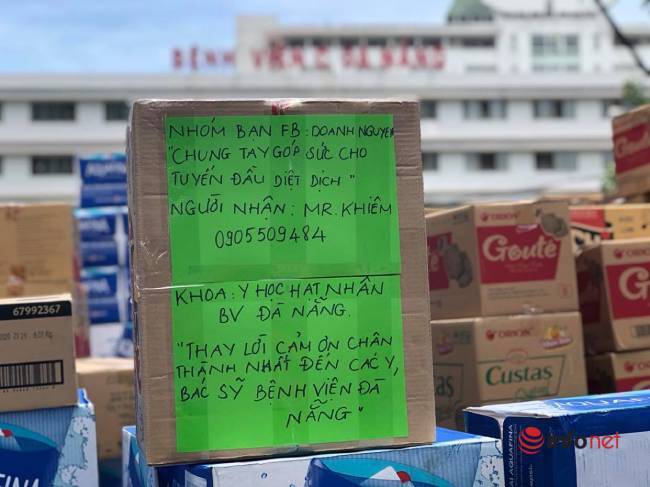 BỆNH VIỆN C ĐÀ NẴNG
NHÓM BẠN FB : DOANH NGUYEN
"CHUNG TAY GÓP SỨC CHO
TUYẾN ĐẦU DIỆT DỊCH"
NGƯỜI NHẬN : MR. KHIÊM
0905509484
KHOA : Y HỌC HẠT NHÂN
BV ĐÀ NẴNG.
"THAY LỜI CẢM ƠN CHÂN
THÀNH NHẤT ĐẾN CÁC Y,
BÁC SỸ BỆNH VIỆN ĐÀ
NẴNG"
67992367
ORION
Gouté
ORION
Custas
Gouté
infonet